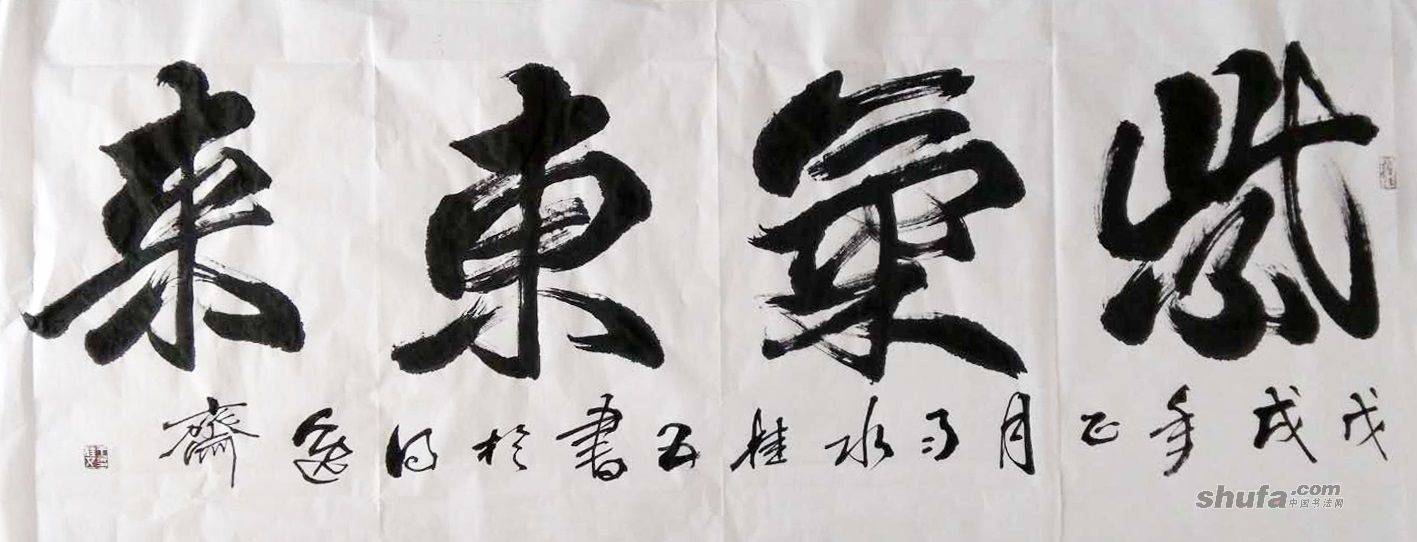 紫氣東来
戊戌年正月雨水桂書於得逸齋
shufa.com
中国书法网